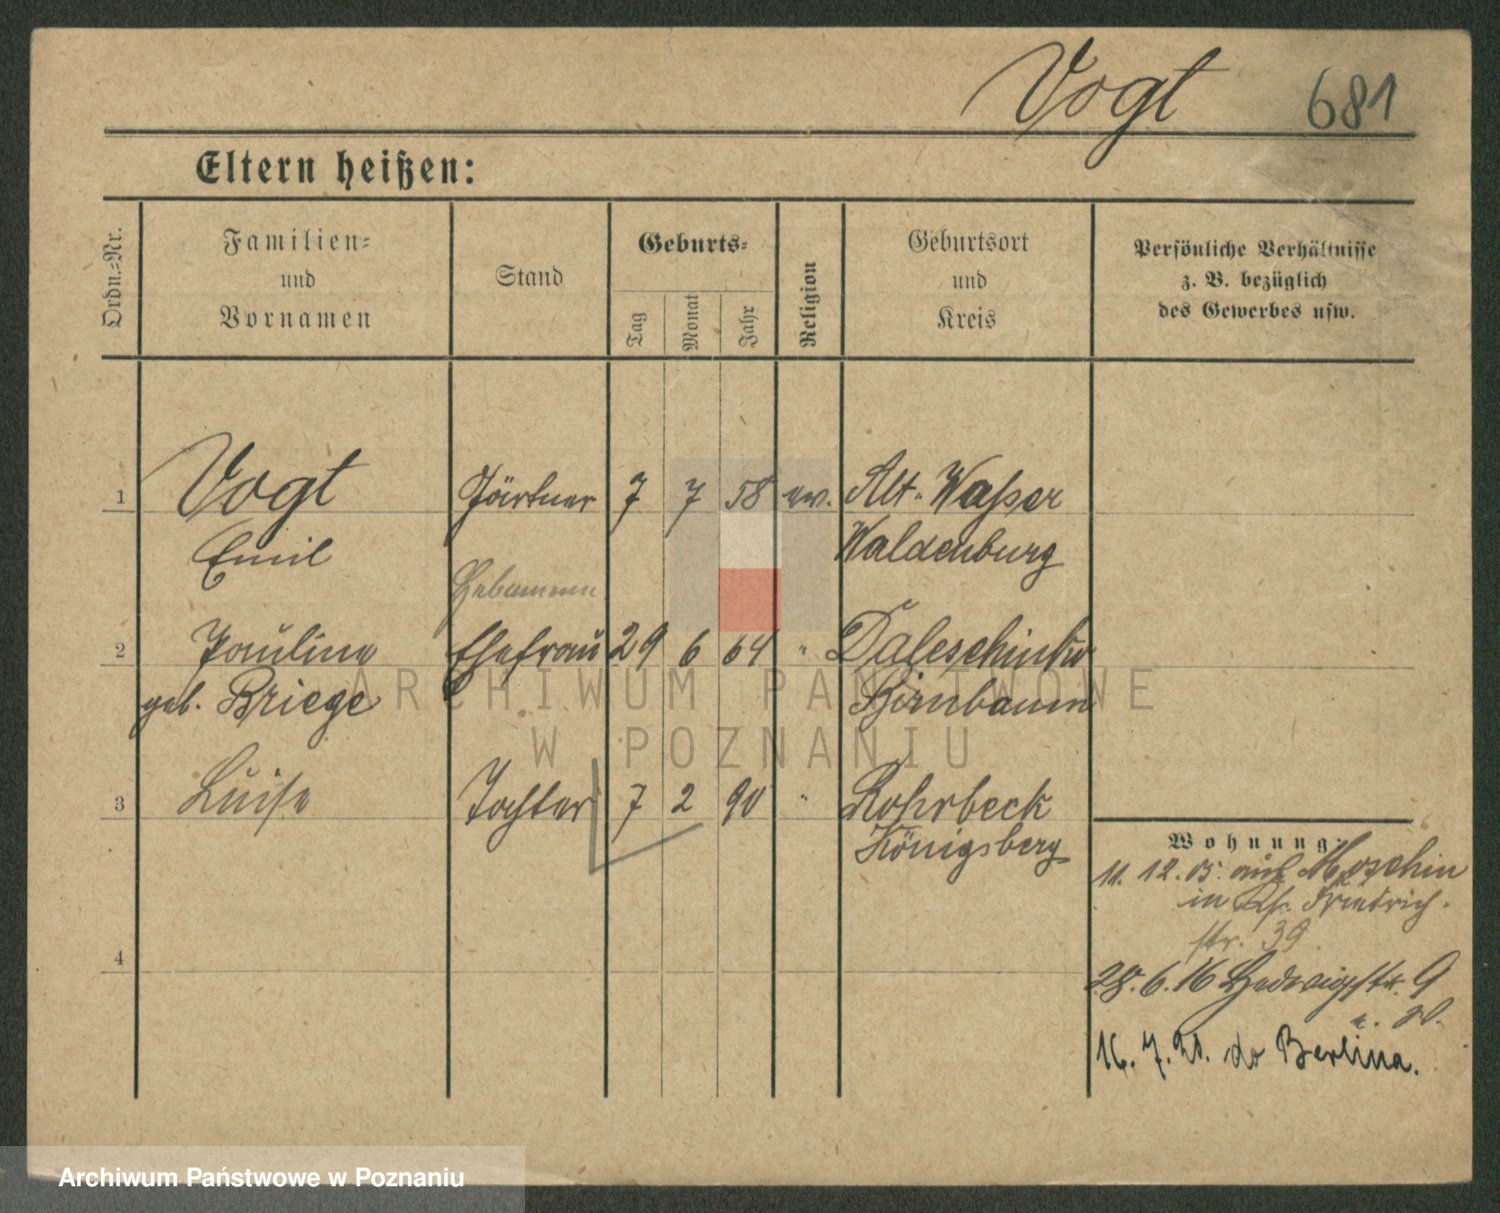 Vogt 681
Eltern heißen:
Ordn.=Nr.
Familien=
und
Vornamen
Stand
Geburts=
Tag
Monat
Jahr
Religion
Geburtsort
und
Kreis
Persönliche Verhältnisse
z. B. bezüglich
des Gewerbes usw.
1 Vogt Gärtner 7 7 58 ev. Alt-Wasser
Emil Waldenburg
Hebamme
2 Pauline Ehefrau 29 6 64 " Daleschinko
geb. Briege Birnbaum
3 Luise Tochter 7 2 90 " Rohrbeck
Königsberg
Wohnung:
11. 12. 05. aus Moschin
in Friedrich-
str. 39.
4
28. 6. 16 Hedwigstr. 9
16. 7. 20. do Berlina.
ARCHIWUM PAŃSTWOWE
W POZNANIU
Archiwum Państwowe w Poznaniu